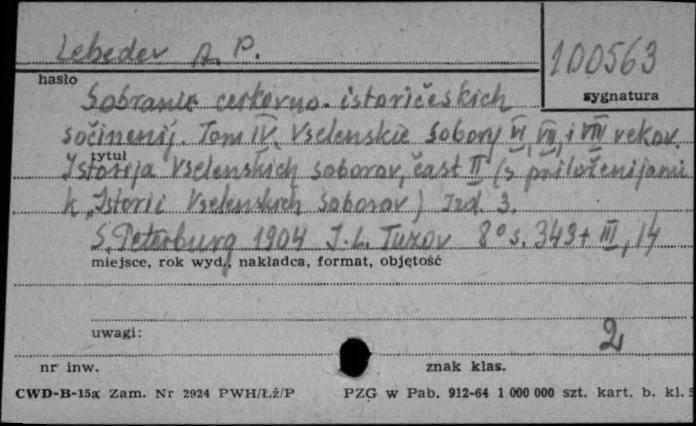 Lebedev A. P.
100563
hasło
sygnatura
Sobranie cerkovno-istoričeskich
sočinenij. Tom IV. Vselenskie sobory VI, VII, i VIII vekov.
tytuł
Istorija Vselenskich soborov, čast II (s priloženijami
k „Istorii Vselenskich soborov) Izd. 3.
S. Peterburg 1904 I. L. Tuzov 8° s. 343+III, 14
miejsce, rok wyd., nakładca, format, objętość
uwagi:
2
nr inw.
znak klas.
CWD-B-15a Zam. Nr 2924 PWH/Łź/P PZG w Pab. 912-64 1 000 000 szt. kart. b. kl.